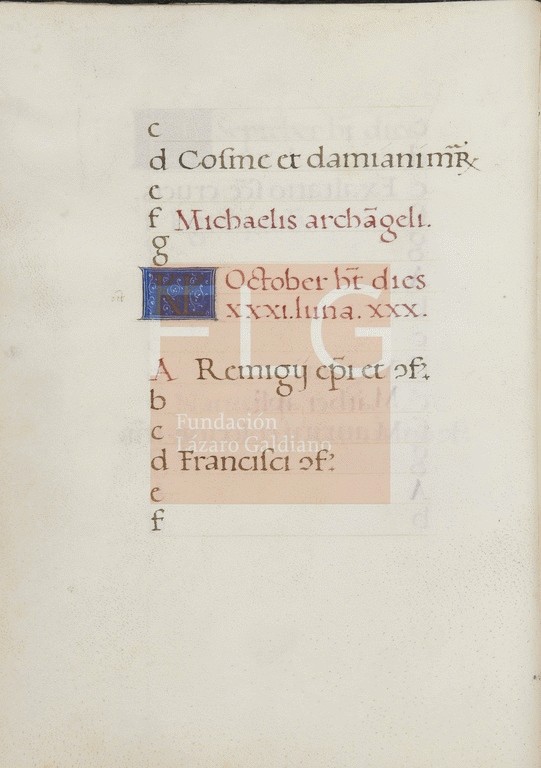 c
d Cosme et damiani mr̄R̄
e
f Michaelis archāgeli.
g
KL October hꝫ dies
xxxi. luna. xxx.
A Remigij ep̄i et ↄf.
b
c
d Francisci ↄf.
e
f
FLG
Fundación
Lázaro Galdiano